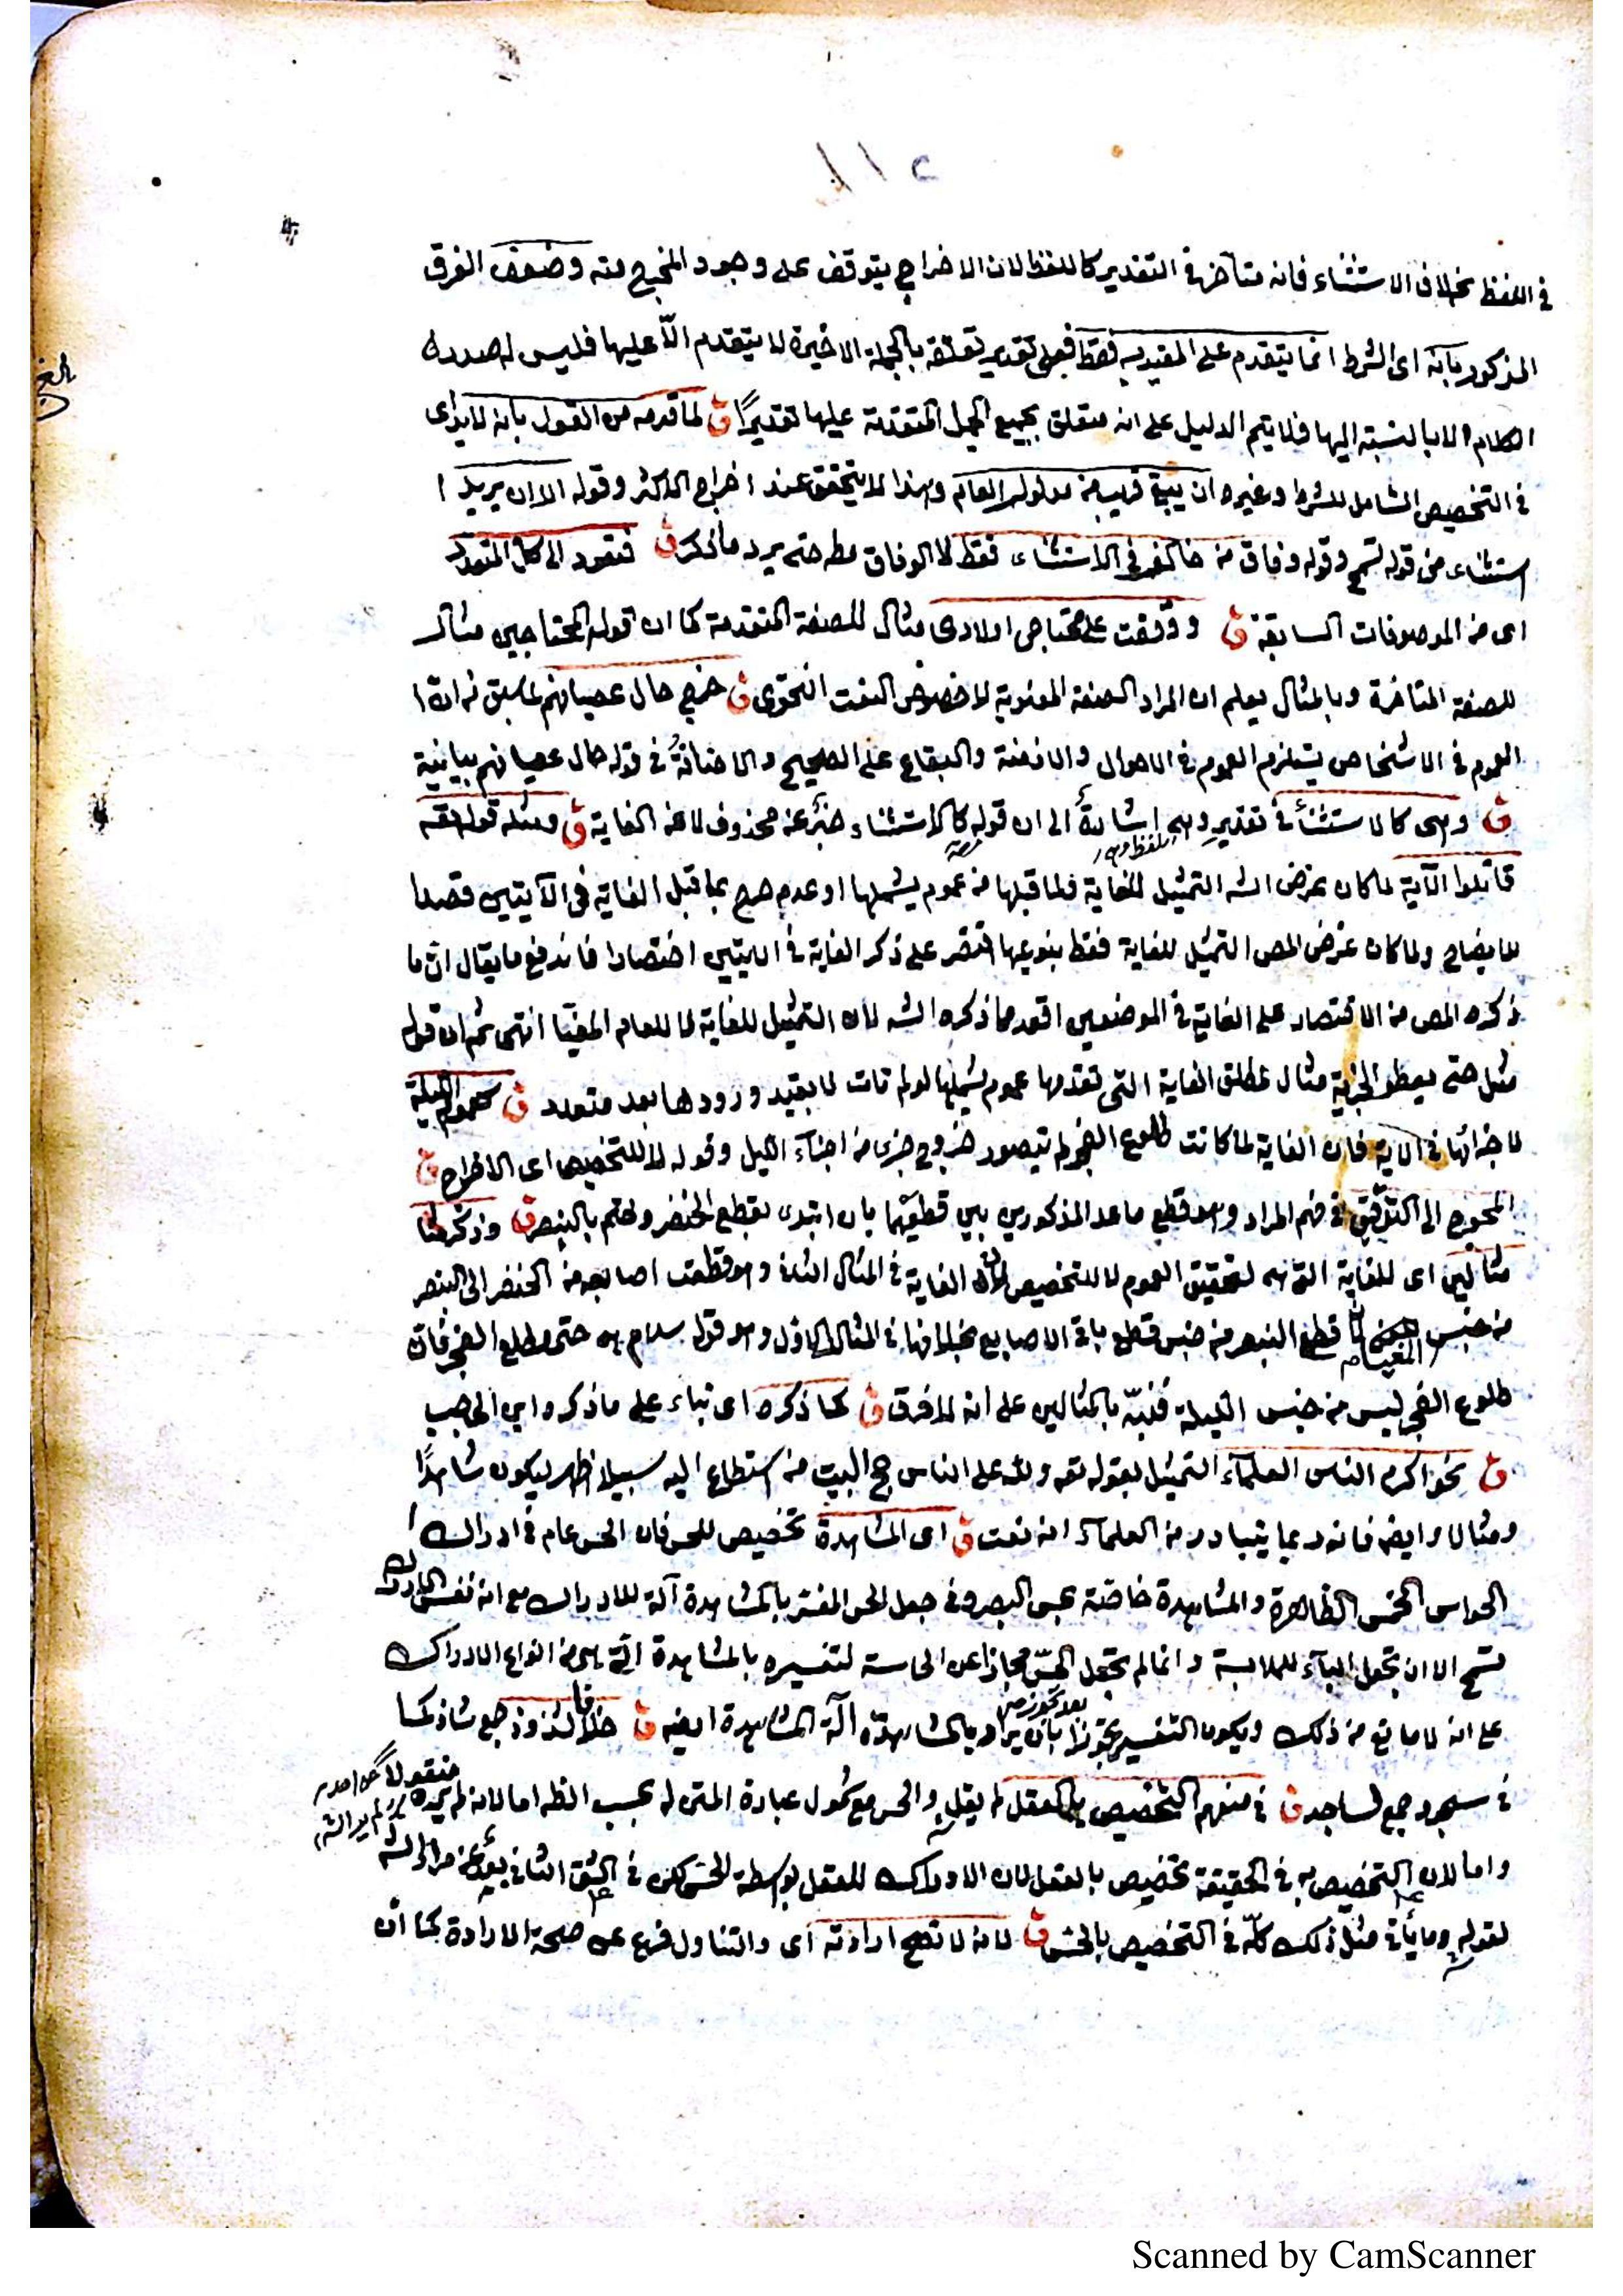 في اللفظ بخلاف الاستثناء فانه متأخر في التقدير كاللفظ لان الاخراج يتوقف على وجود المخرج منه وضعف الفرق
المذكور بانه اى الشرط انما يتقدم على المقيد به فقط فعلى تقدير تعلقه بالجملة الاخيرة لا يتقدم الّا عليها فليس له صدر
الكلام الا بالنسبة اليها فلا يتم الدليل على انه متعلق بجميع الجمل المتقدمة عليها تقديرًا ق لما قدمه من القول بانه لا بد
في التخصيص الشامل للشرط وغيره ان يبقى قريب من مدلول العام وهذا لا يتحقق عند اخراج الاكثر وقوله الا ان يريد ا
ستثناء من قوله تسمح وقوله وفاق من خالف في الاستثناء فقط لا الوفاق مط حتى يرد ما ذكر ق فتعود الى كل المتعدد
اى من الموصوفات السابقة ق ووقفت على محتاجى اولادى مثال للصفة المتقدمة كما ان قوله المحتاجين مثال
للصفة المتاخرة وبالمثال يعلم ان المراد الصفة المعنوية لا خصوص النعت النحوى ق خرج حال عصيانهم لما سبق من ان ا
لعموم في الاشخاص يستلزم العموم في الاحوال والازمنة والبقاع على الصحيح والاضافة في قوله حال عصيانهم بيانية
ق وهى كالاستثناء في تقدير وهى اشارة الى ان قوله كالاستثناء خبر عن محذوف لا عن الغاية ق ومثله قوله تعه
قاتلوا الآية لما كان غرض الشه التمثيل للغاية ولما قبلها من عموم يشملها او عدمه صرح بما قبل الغاية في الآيتين قصدا
للايضاح ولما كان غرض المص التمثيل للغاية فقط بنوعيها اقتصر على ذكر الغاية في الايتين اختصارا فاندفع ما يقال ان ما
ذكره المص من الاقتصار على الغاية في الموضعين اقعد مما ذكره الشه لان التمثيل للغاية لا للعام المغيّا انتهى ثم ان قول
مثل حتى يعطو الجزية مثال لمطلق الغاية التى تقدمها عموم يشملها لو لم تات لا بقيد ورودها بعد متعدد ق كعموم الليلة
لاجزائها في الاية فان الغاية لما كانت طلوع الفجر لم يتصور خروج جزء من اجزاء الليل وقوله لا للتخصيص اى الاخراج ق
المحوج الى التوقّف في فهم المراد وهو قطع ما عد المذكورين بين قطعيهما بان ابتدى بقطع الخنصر وختم بالبنصر ق وذكر هنا
مثالين اى للغاية التى هى لتحقيق العموم لا للتخصيص لان الغاية في المثال الثانى وهو قطعت اصابعه من الخنصر الى البنصر
من جنس المغيا لان قطع البنصر من جنس قطع باقى الاصابع بخلافها في المثال الاول وهو قوله سلام هى حتى مطلع الفجر فان
طلوع الفجر ليس من جنس الليلة فنبّه بالمثالين على انه لا فرق ق كما ذكره اى بناء على ما ذكره ابن الحاجب
ق نحو اكرم الناس العلماء التمثيل بقوله تعه ولله على الناس حج البيت من استطاع اليه سبيلا اظهر ليكون شاهدًا
ومثالا وايضا فانه ربما يتبادر من العلماء انه نعت ق اى المشاهدة تخصيص للحس فان الحس عام في ادراك
الحواس الخمس الظاهرة والمشاهدة خاصة بحس البصر وفي جعل الحس المفسّر بالمشاهدة آلة للادراك مع انه نفس الادراك
تسمح الا ان تجعل الباء للملابسة وانما لم تجعل الحسّ مجازا عن الحاسة لتفسيره بالمشاهدة التى هى من انواع الادراك
على انه لا مانع من ذلك ويكون التفسير تجوزا بان يراد بالمشاهدة آلة المشاهدة ايضا ق خلافا لشذوذ جمع شاذ كما
في سجود جمع لساجد ق في منعهم التخصيص بالعقل لم يقل والحس مع شمول عبارة المتن له بحسب الظ اما لانه لم يره منقولا عن احد
واما لان التخصيص به في الحقيقة تخصيص بالعقل لان الادراك للعقل بواسطة الحس لكن في الشق الثانى بعد عن مراد الشه
لقوله وما يأتى مثل ذلك كلّه في التخصيص بالحس ق لانه لا تصح ارادته اى والتناول فرع عن صحة الارادة كما أن
Scanned by CamScanner